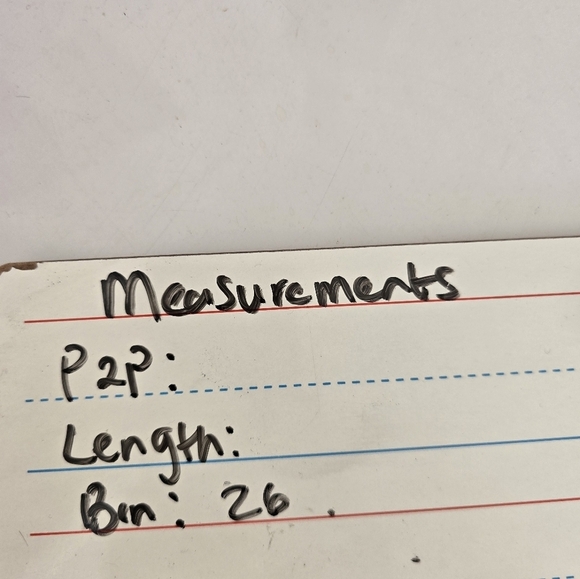 Measurements
P2P:
Length:
Bin: 26 .